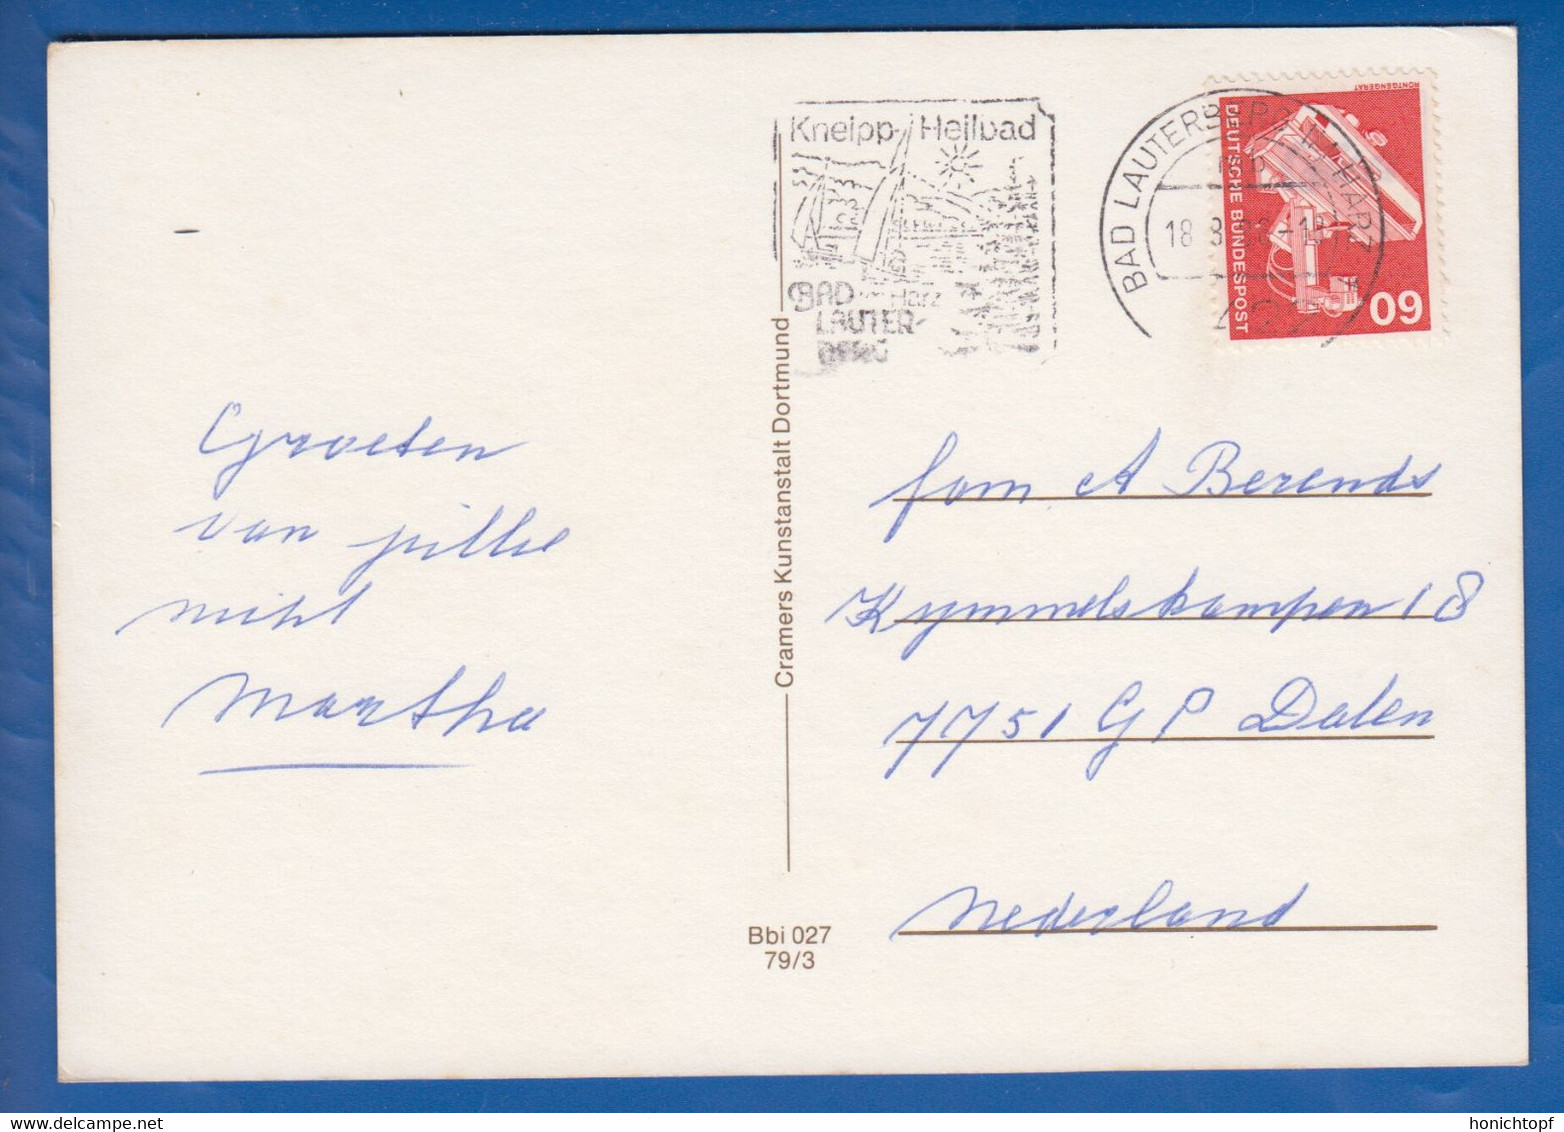 Kneipp-Heilbad
BAD Harz
LAUTER-
BAD LAUTERBERG IM HARZ
18
RÖNTGENGERÄT
DEUTSCHE BUNDESPOST
60
Groeten
van jillie
nicht
Martha
Cramers Kunstanstalt Dortmund
Bbi 027
79/3
fam A Berends
Kymmelskampen 18
7751 GP Dalen
Nederland
honichtopf